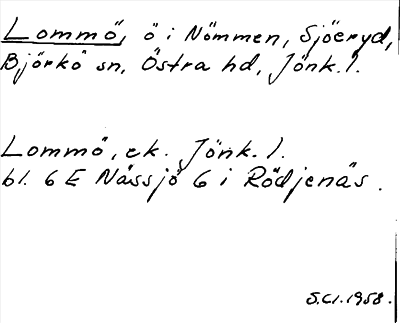 Lommö, ö i Nömmen, Sjöeryd,
Björkö sn, Östra hd, Jönk. l.
Lommö, ek. Jönk. l.
bl. 6 E Nässjö 6 i Rödjenäs.
S.Cl. 1958.